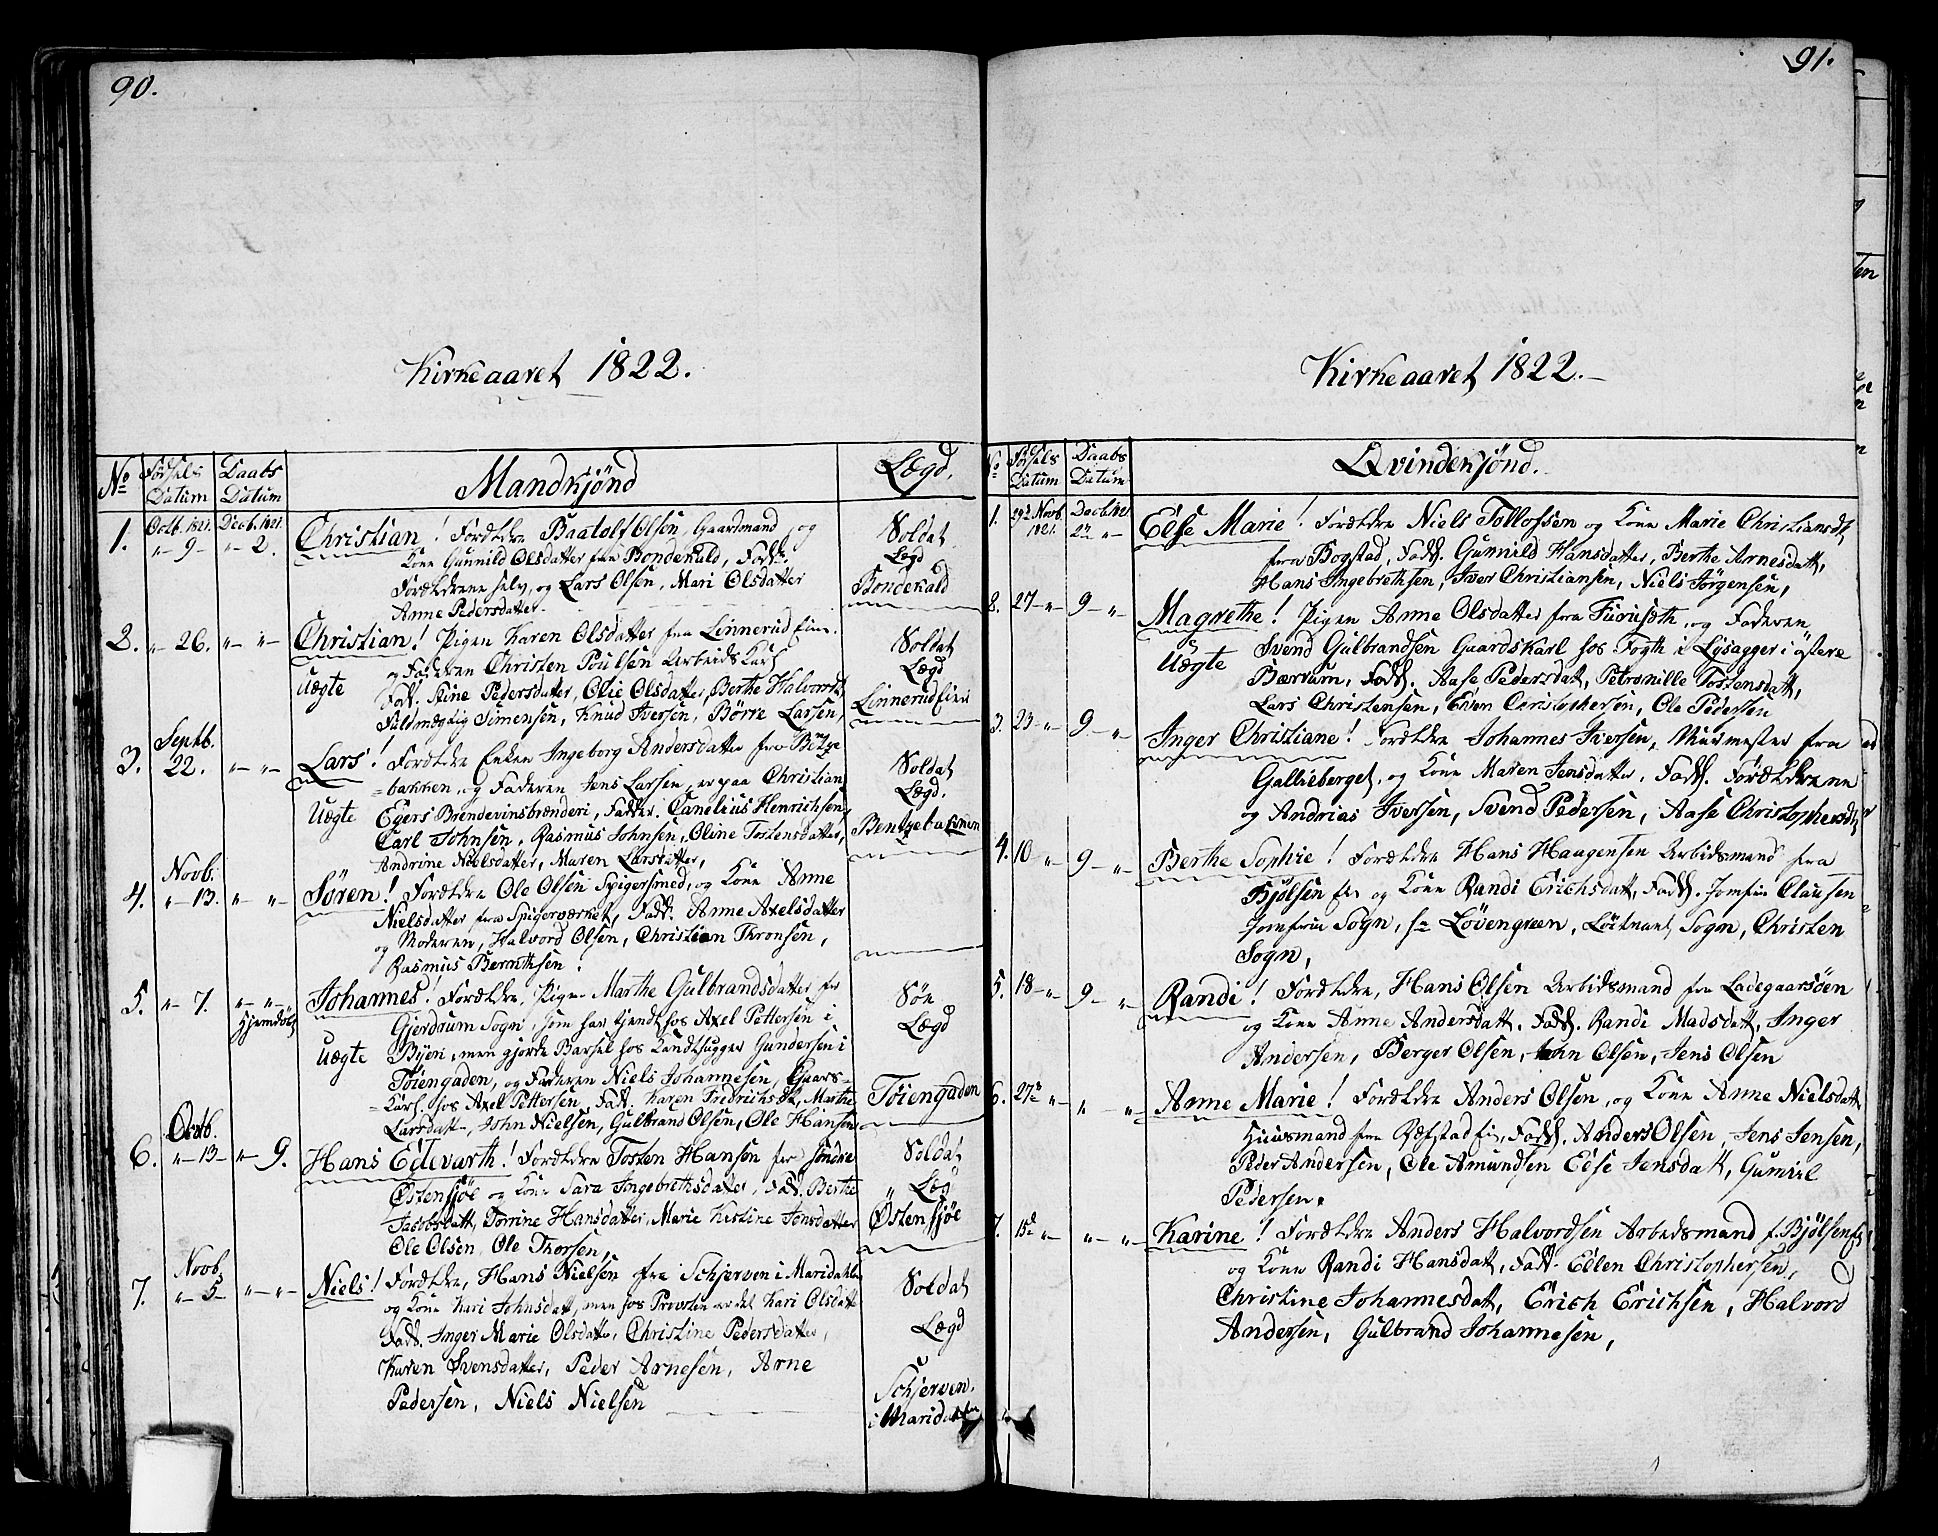 90.
Kirkeaaret 1822.
No Førsels Datum Daabs Datum Mandkjönd Lægd.
1. Octb. 1821. " 9 - Decb. 1821. " 2. Christian! Forældre Baatolf Olsen, Gaardmand, og
Kone Gunnild Olsdatter fra Bondekuld, Fadd.
Forældrene selv, og Lars Olsen, Mari Olsdatter
Anne Pedersdatter.
Soldat
Lægd
Bondekald
2. " 26. " " Christian! Pigen Karen Olsdatter fra Linnerud
og Faderen Christen Poulsen Arbeids Karl
Uægte Fadd. Stine Pedersdatter, Olie Olsdatter, Berthe Halvorsdt,
Fildmægtig Simensen, Knud Iversen, Börre Larsen,
Soldat
Lægd
Linnerud
3. Septb. 22. " " Lars! Forældre Enken Ingeborg Andersdatter fra
bakken, og Faderen Jens Larsen, er paa Christian
Uægte Egers Brendevinsbrænderi, Fadder. Canelius Henrichsen,
Carl Johnsen, Rasmus Johnsen, Oline Tostensdatter,
Andrine Nielsdatter, Maren Larsdatter,
Soldat
Lægd.
4. Novb. " 13. " " Sören! Forældre Ole Olsen Spigersmed, og Kone Anne
Nielsdatter fra Spigerværket, Fadd. Anne Axelsdatter
og Moderen, Halvord Olsen, Christian Thronsen,
Rasmus Bernthsen.
5. " 7. " " Hjemdøbt Johannes! Forældre, Pigen Marthe Gulbrandsdatter fra
Gjerdrum Sogn, som har tjendt hos Axel Pettersen i
Uægte Byen, men gjorde Barsel hos Gundersen i
Töiengaden, og Faderen Niels Johannesen, Gaars-
Karl hos Axel Pettersen, Fadd. Karen Fredrichsdt, Marthe
Larsdatt, John Nielsen, Gulbrand Olsen, Ole Hansen
Söe
Lægd
Töiengaden
6. Octb. " 13 - " 9. Hans Edevarth! Forældre Tosten Hansen fra söndre
Østensjöe og Kone Sara Ingebrethsdatter, Fadd. Berthe
Jacobsdatt, Torrine Hansdatter, Marie Kistine Jonsdatter
Ole Olsen, Ole Thorsen,
Soldat
Læg
Østensjöe
7. Novb. " 5 - " " Niels! Forældre, Hans Nielsen fra Schjerven i Maridahlen
og Kone Kari Johnsdatt, men hos Præsten er det Kari Olsdatt
Fadd. Inger Marie Olsdatter, Christine Pedersdatter,
Karen Svensdatter, Peder Arnesen, Arne
Pedersen, Niels Nielsen
Soldat
Lægd
Schjerven
i Maridalen
91.
Kirkeaaret 1822.
No Førsels Datum Daabs Datum Qvindekjönd.
1. 29de Novb. 1821. Decb. 1821 2den " Else Marie! Forældre Niels Tollofsen og Kone Marie Christiansdt,
fra Bogstad, Fadd. Gunnild Hansdatter, Berthe Arnesdatt,
Hans Ingebrethsen, Iver Christiansen, Niels Jörgensen,
2. 27 - " 9 - " Magrethe! Pigen Anne Olsdatter fra Furuseth, og Faderen
Uægte Svend Gulbrandsen Gaardskarl hos Fogth i Lysagger i östere
Bærrum, Fadd. Aase Pedersdatt, Petronille Tostensdatt,
Lars Christensen, Even Christophersen, Ole Pedersen
3. 23 - " 9 - " Inger Christiane! Forældre Johannes Iversen, Murmester fra
Gallieberget, og Kone Maren Jensdatter, Fadd. Forældrerne
og Andrias Iversen, Svend Pedersen, Aase Christophersdt,
4. 10 " 9 - " Berthe Sophie! Forældre Hans Haagensen Arbidsmand fra
Bjölsen og Kone Randi Erichsdatt, Fadd. Jomfru Clausen
Jomfru Sogn, Lövengreen, Löitnant Sogn, Christen
Sogn,
5. 18 - " 9 - " Randi! Forældre, Hans Olsen Arbidsmand fra Ladegaarsöen
og Kone Anne Andersdatt. Fadd. Randi Madsdatt, Inger
Andersen, Berger Olsen, John Olsen, Jens Olsen
6. 27de " " " Anne Marie! Forældre Anders Olsen, og Kone Anne Nielsdatt
Huusmand fra Refstad, Fadd. Anders Olsen, Jens Jensen,
Peder Andersen, Ole Amundsen Edse Jensdatt, Gunvil
Pedersen.
7. 15de " " " Karine! Forældre Anders Halvordsen Arbedsmand f. Bjölsen
og Kone Randi Hansdatt, Fadd. Edlen Christophersen,
Christine Johannesdatt, Erich Erichsen, Halvord
Andersen, Gulbrand Johannesen,